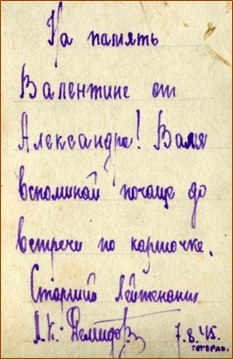 На память
Валентине от
Александра! Валя
вспоминай почаще до
встречи по карточке.
Старший Лейтенант
Демидов
7.8.45.